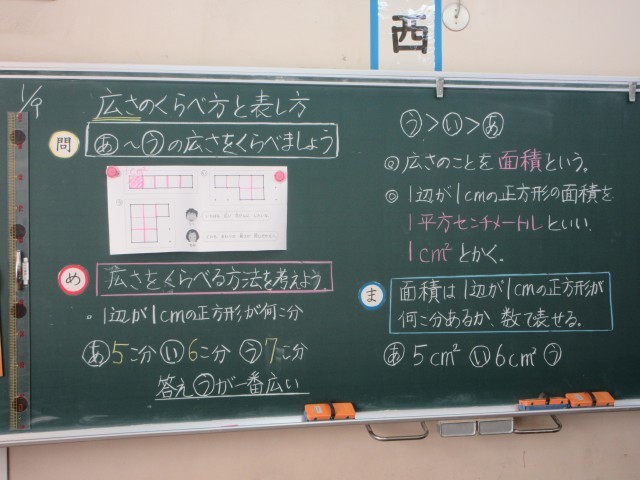 西
1/9
広さのくらべ方と表し方
問
あ～うの広さをくらべましょう
め
広さをくらべる方法を考えよう。
・1辺が1cmの正方形が何こ分
あ5こ分 い6こ分 う7こ分
答え うが一番広い
う>い>あ
◎広さのことを面積という。
◎1辺が1cmの正方形の面積を
1平方センチメートルといい
1cm²とかく。
ま
面積は1辺が1cmの正方形が
何こ分あるか、数で表せる。
あ5cm² い6cm² う